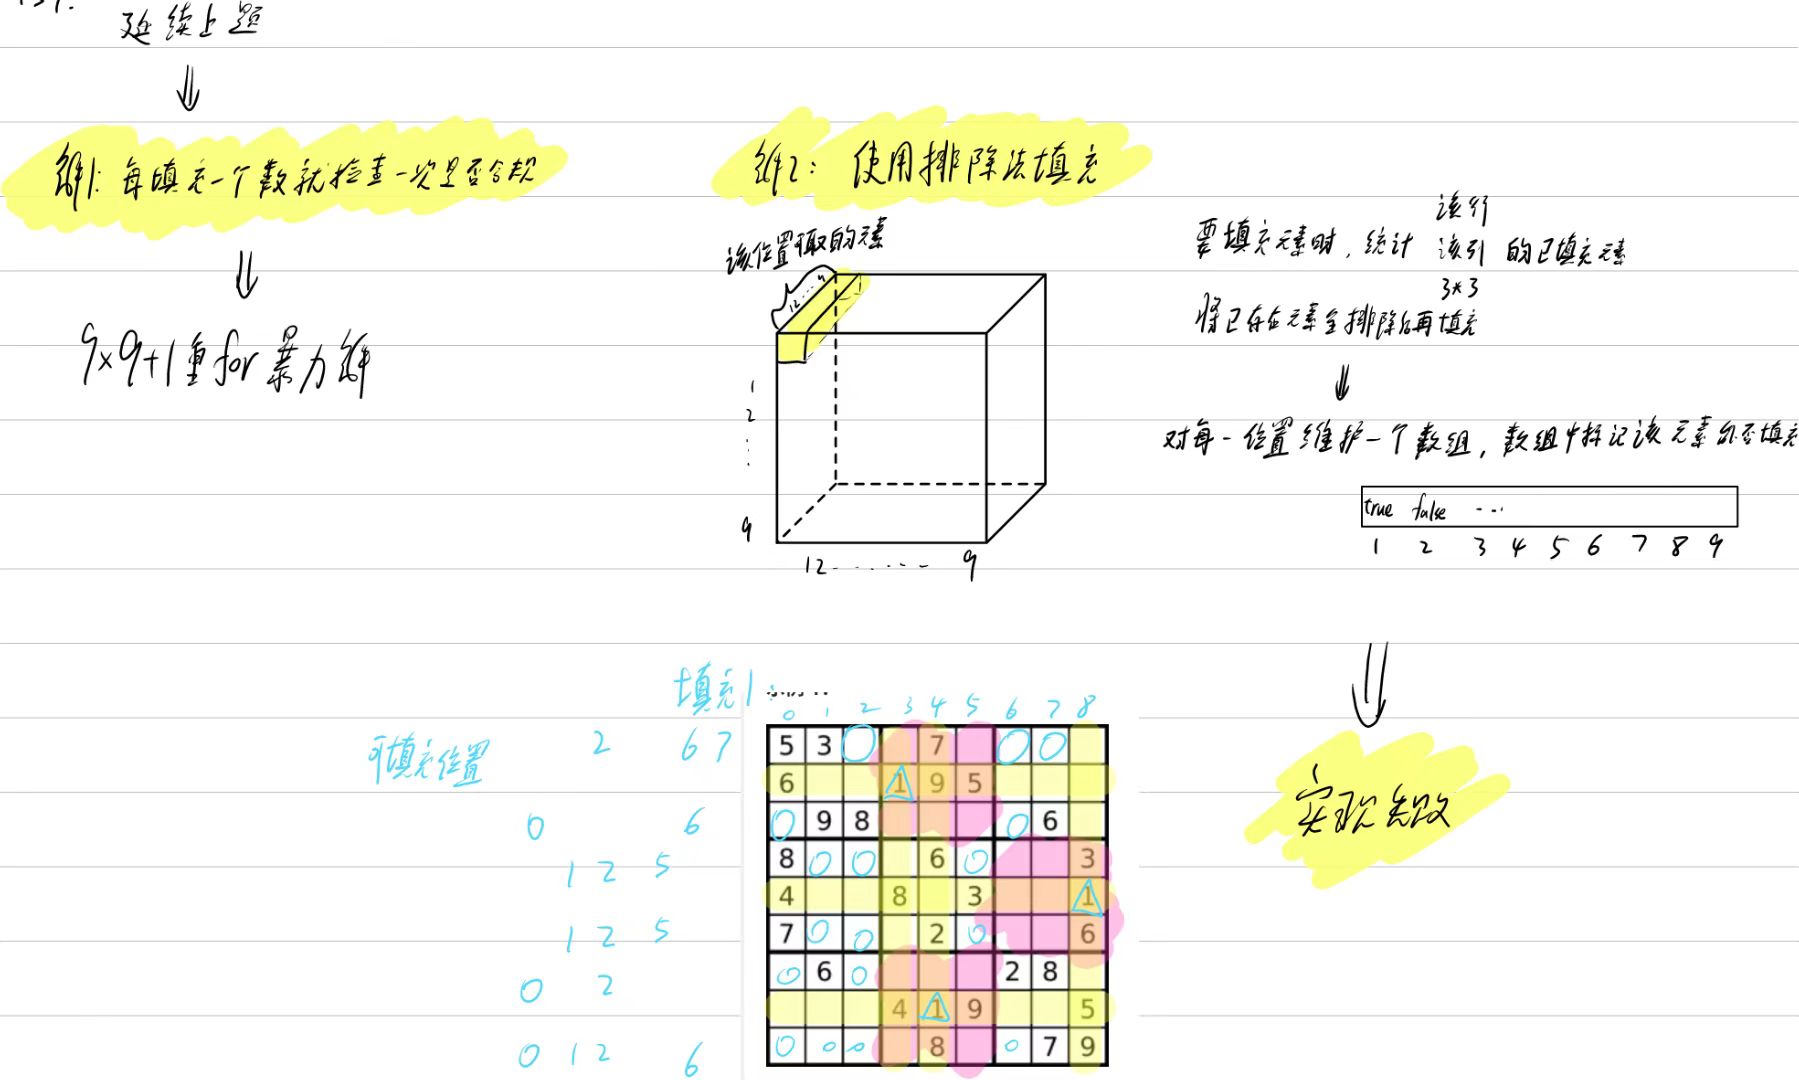 延续上题
⇓
解1: 每填充一个数就检查一次是否合规
⇓
9×9+1重for暴力解
解2: 使用排除法填充
该位置可取的元素
12....9
1
2
9
12........9
该行
要填充元素时,统计 该列 的已填充元素
3*3
将已存在元素全排除后再填充
⇓
对每一位置维护一个数组,数组中标记该元素能否填充
true false ...
1 2 3 4 5 6 7 8 9
⇓
实现失败
填充1:
可填充位置
2 6 7
0 6
1 2 5
1 2 5
0 2
0 1 2 6
0 1 2 3 4 5 6 7 8
5 3 7
6 1 9 5
9 8 6
8 6 3
4 8 3 1
7 2 6
6 2 8
4 1 9 5
8 7 9